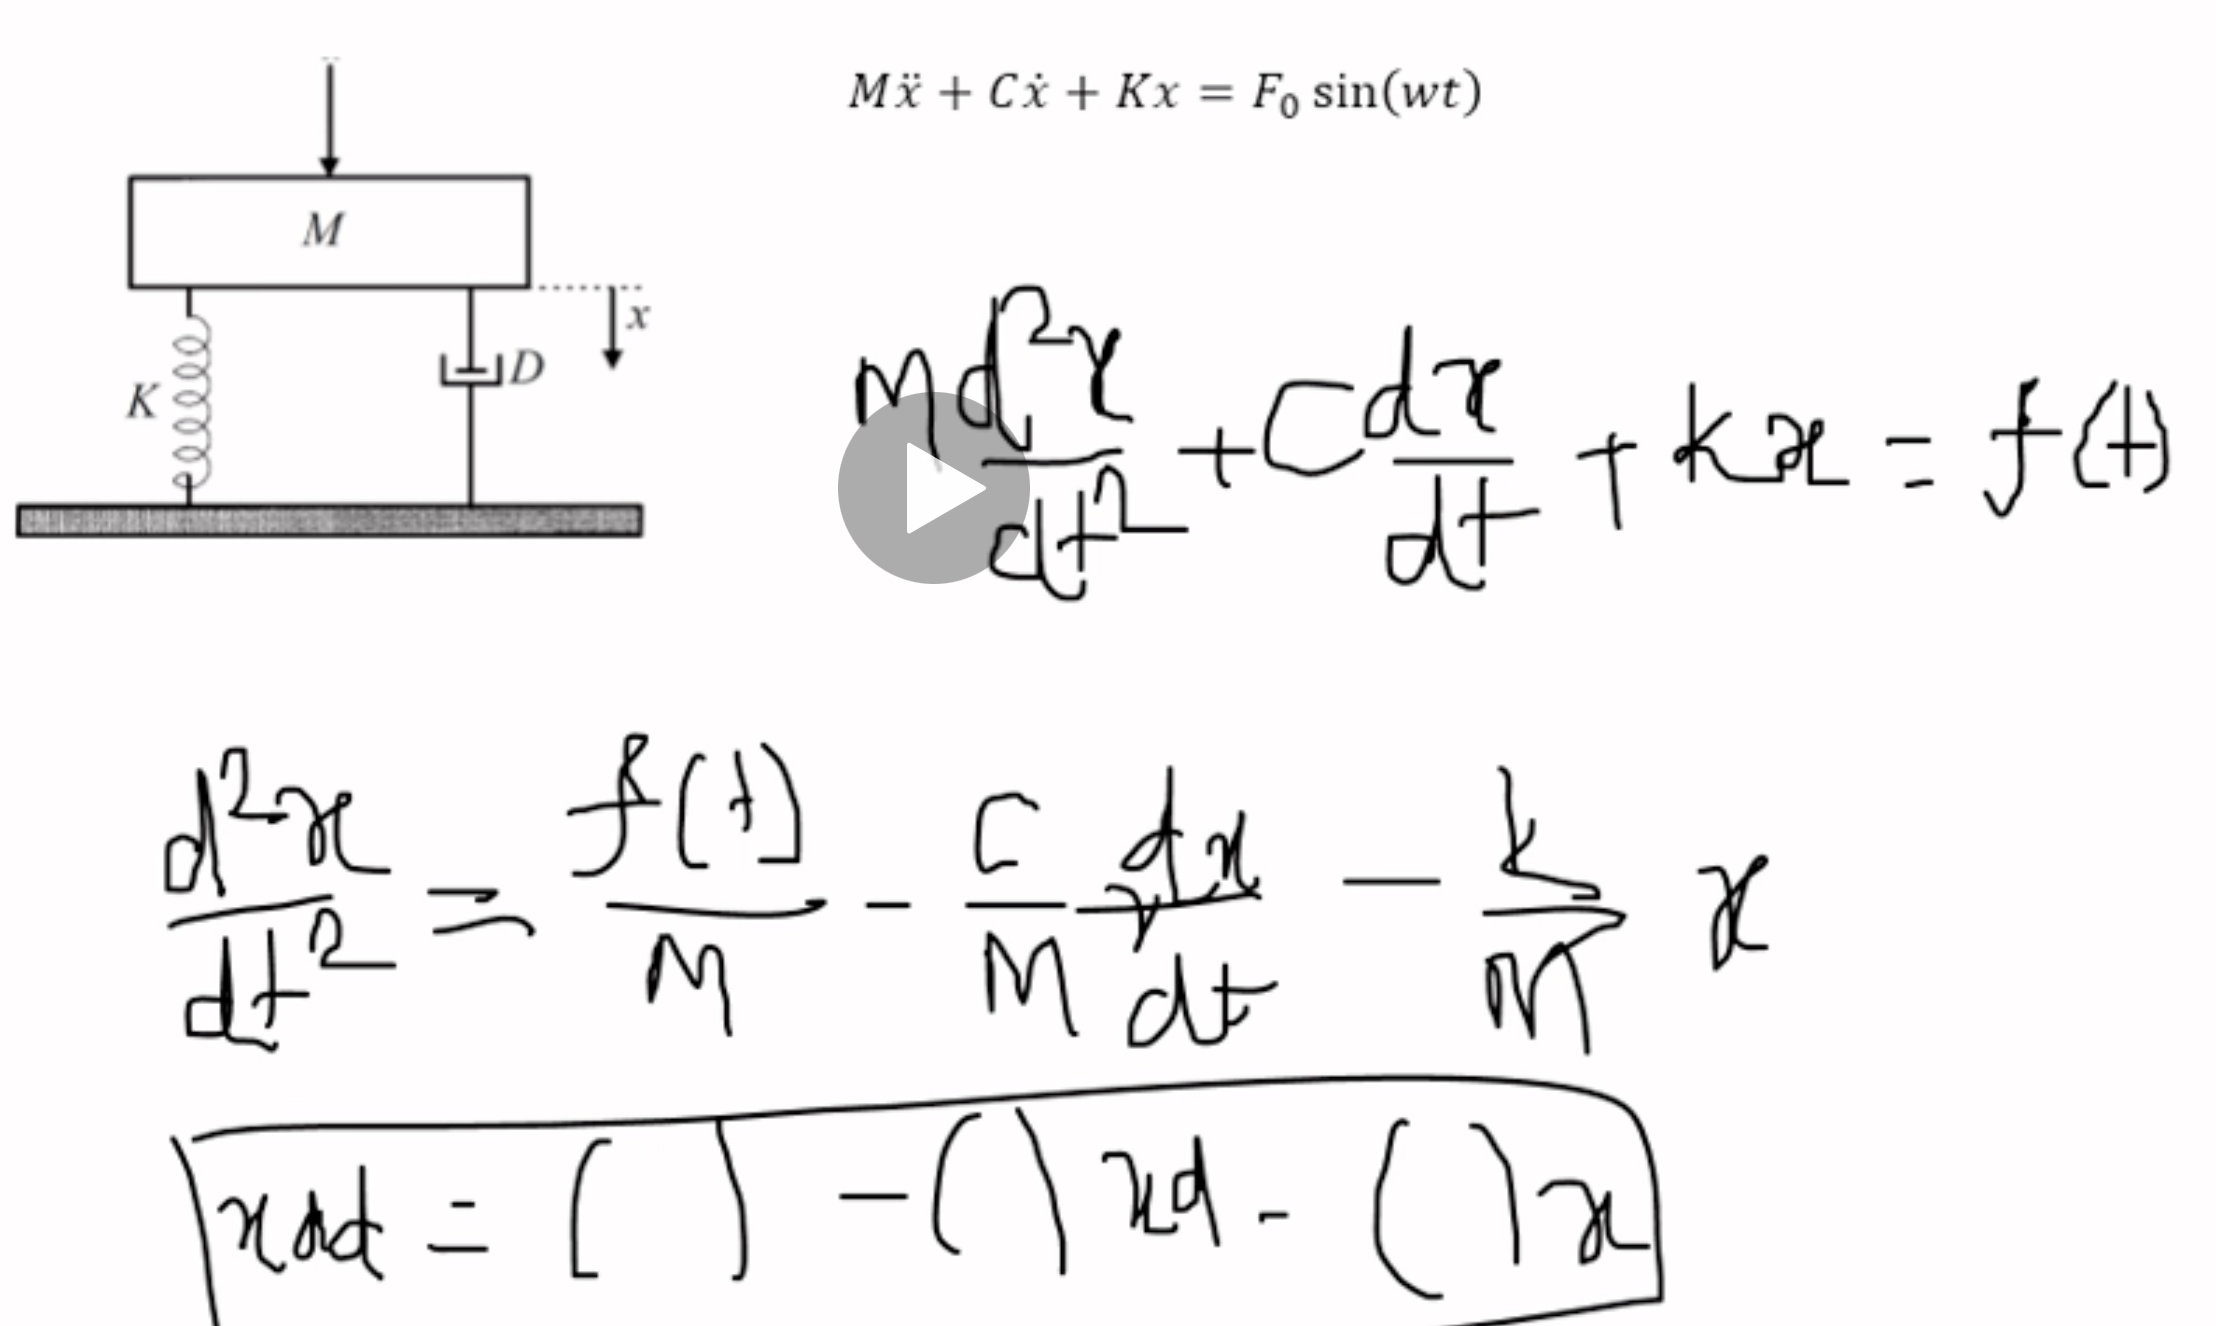 Mẍ + Cẋ + Kx = F₀ sin(wt)
M
x
K
D
M d²x/dt² + C dx/dt + kx = f(t)
d²x/dt² = f(t)/M - C/M dx/dt - k/M x
xdd = ( ) - ( ) xd - ( ) x